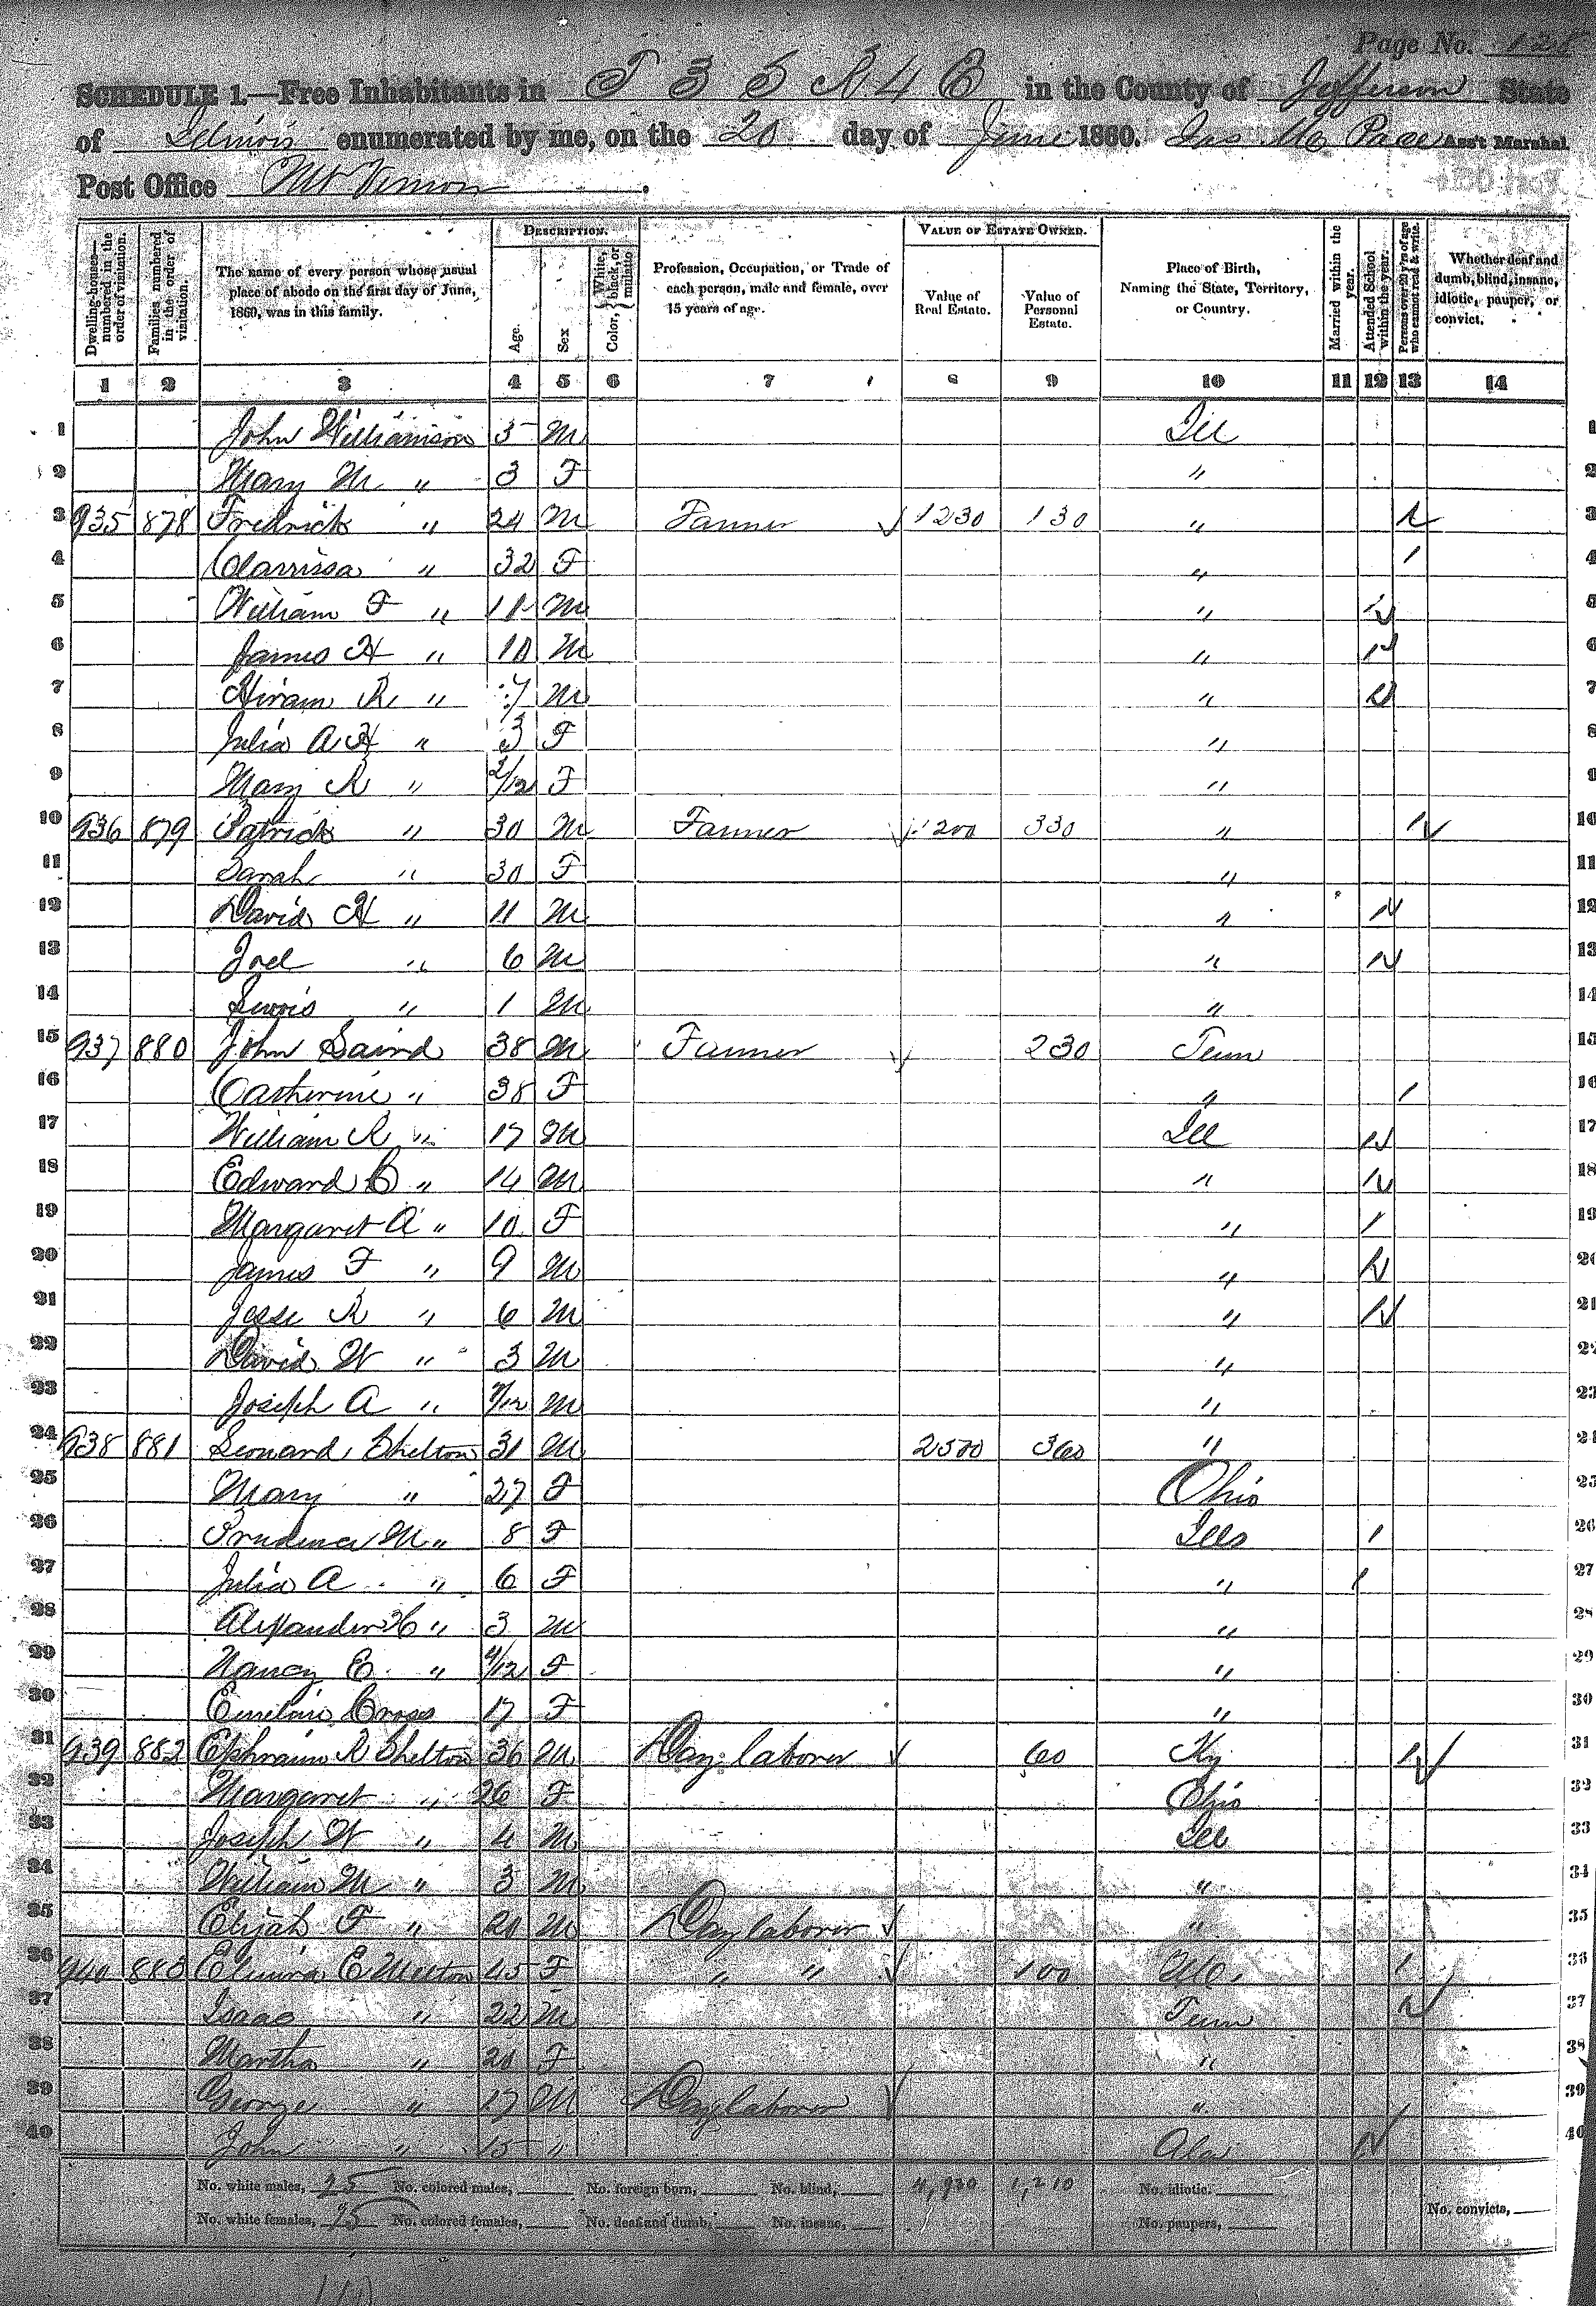 Page No.
SCHEDULE 1.—Free Inhabitants in T 3 S R 4 E in the County of Jefferson State
of Illinois enumerated by me, on the 20 day of June 1860. Jas M Pace Ass't Marshal
Post Office Mt Vernon.
Dwelling-houses—numbered in the order of visitation.
Families numbered in the order of visitation.
The name of every person whose usual place of abode on the first day of June, 1860, was in this family.
DESCRIPTION.
Age.
Sex
Color, { White, black, or mulatto
Profession, Occupation, or Trade of each person, male and female, over 15 years of age.
VALUE OF ESTATE OWNED.
Value of Real Estate.
Value of Personal Estate.
Place of Birth, Naming the State, Territory, or Country.
Married within the year.
Attended School within the year.
Persons over 20 y'rs of age who cannot read & write.
Whether deaf and dumb, blind, insane, idiotic, pauper, or convict.
1 2 3 4 5 6 7 8 9 10 11 12 13 14
1 John Williamson 5 M Ill 1
2 Mary M " 3 F " 2
3 935 878 Fredrick " 24 M Farmer 1230 130 " 1 3
4 Clarrissa " 32 F " 1 4
5 William F " M " 1 5
6 James H " 10 M " 1 6
7 Hiram R " 7 M " 1 7
8 Julia A H " 3 F " 8
9 Mary R " 2/12 F " 9
10 936 879 Patrick " 30 M Farmer 1200 330 " 1 10
11 Sarah " 30 F " 11
12 David H " 11 M " 1 12
13 Joel " 6 M " 1 13
14 Lewis " 1 M " 14
15 937 880 John Laird 38 M Farmer 230 Tenn 15
16 Catherine " 38 F " 1 16
17 William R " 17 M Ill 1 17
18 Edward B " 14 M " 1 18
19 Margaret A " 10 F " 1 19
20 James F " 9 M " 1 20
21 Jesse R " 6 M " 1 21
22 David W " 3 M " 22
23 Joseph A " 7/12 M " 23
24 938 881 Leonard Shelton 31 M 2500 360 " 24
25 Mary " 27 F Ohio 25
26 Prudence M " 8 F Ills 1 26
27 Julia A " 6 F " 1 27
28 Alexander H " 3 M " 28
29 Nancy E " 4/12 F " 29
30 Cross 17 F " 30
31 939 882 Ephraim R Shelton 36 M Day laborer 60 Ky 1 31
32 Margaret " 26 F Ohio 32
33 Joseph W " 4 M Ill 33
34 William M " 3 M " 34
35 Elijah F " 20 M Day laborer " 35
36 940 883 Elmira E Melton 45 F " " 100 1 36
37 Isaac " 22 M Tenn 1 37
38 Martha " 20 F " 38
39 George " 17 M Day laborer " 39
40 John " 15 " Ala 1 40
No. white males, 25 No. colored males, No. foreign born, No. blind, 4,930 1,210 No. idiotic.
No. white females, 15 No. colored females, No. deaf and dumb, No. insane, No. paupers, No. convicts,